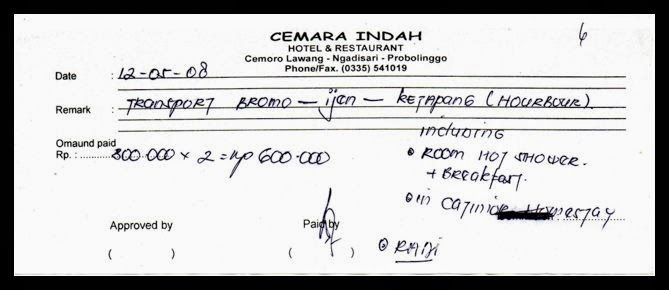 6
CEMARA INDAH
HOTEL & RESTAURANT
Cemoro Lawang - Ngadisari - Probolinggo
Phone/Fax. (0335) 541019
Date : 12-05-08
Remark : TRANSPORT BROMO - ijen - KETAPANG (HOURBOUR).
Omaund paid
Rp. : 300.000 x 2 = Rp 600.000
including
• ROOM HOT SHOWER.
+ Breakfast.
• in Homestay
Approved by
Paid by
( ) ( )